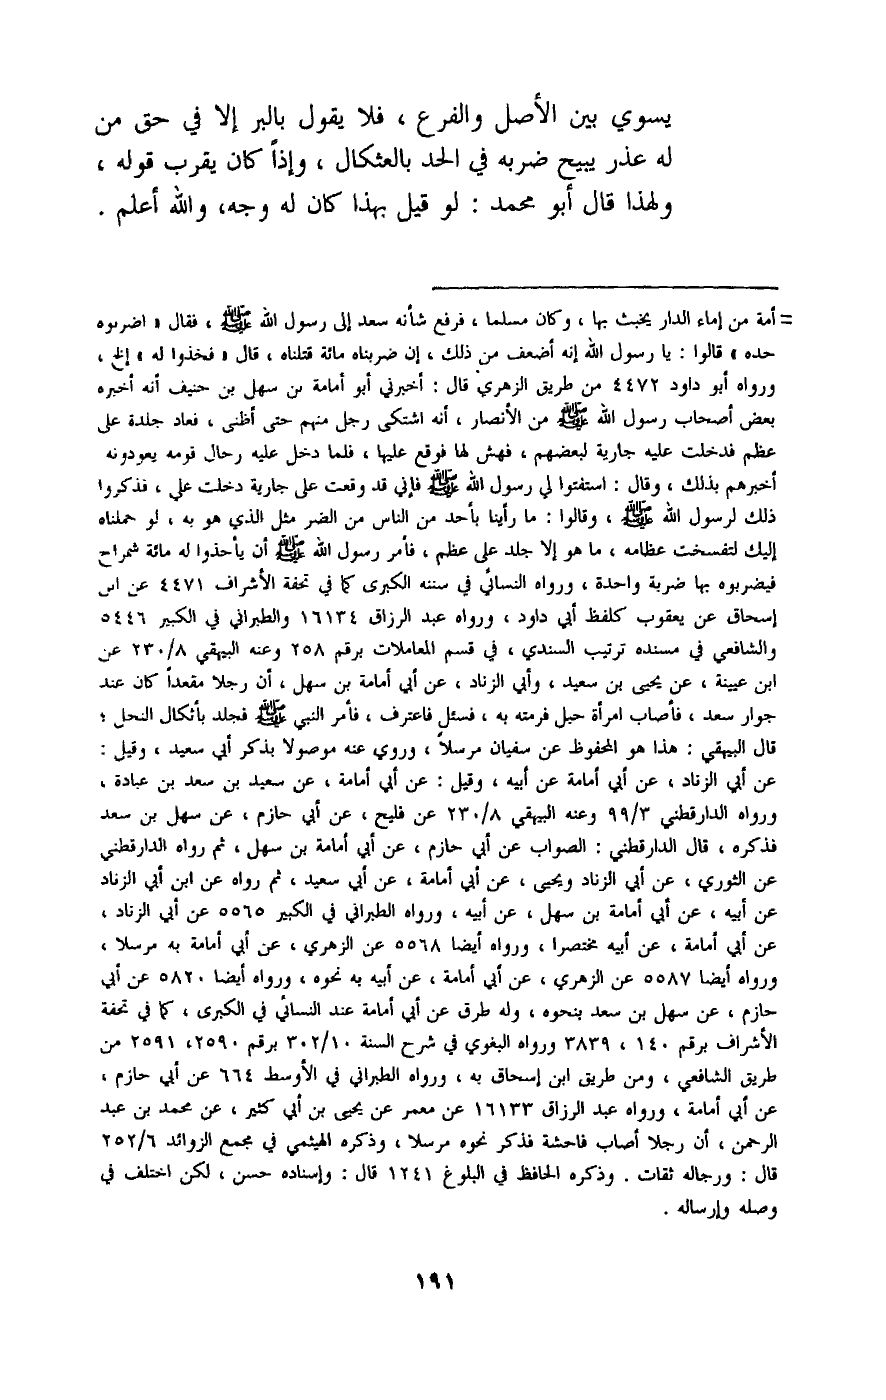 يسوي بين الأصل والفرع ، فلا يقول بالبر إلا في حق من
له عذر يبيح ضربه في الحد بالعثكال ، وإذاً كان يقرب قوله ،
ولهذا قال أبو محمد : لو قيل بهذا كان له وجه، والله أعلم .
= أمة من إماء الدار يخبث بها ، وكان مسلما ، فرفع شأنه سعد إلى رسول الله ﷺ ، فقال « اضربوه
حده » قالوا : يا رسول الله إنه أضعف من ذلك ، إن ضربناه مائة قتلناه ، قال « فخذوا له » إلخ ،
ورواه أبو داود ٤٤٧٢ من طريق الزهري قال : أخبرني أبو أمامة بن سهل بن حنيف أنه أخبره
بعض أصحاب رسول الله ﷺ من الأنصار ، أنه اشتكى رجل منهم حتى أظنى ، فعاد جلدة على
عظم فدخلت عليه جارية لبعضهم ، فهش لها فوقع عليها ، فلما دخل عليه رجال قومه يعودونه
أخبرهم بذلك ، وقال : استفتوا لي رسول الله ﷺ فإني قد وقعت على جارية دخلت علي ، فذكروا
ذلك لرسول الله ﷺ ، وقالوا : ما رأينا بأحد من الناس من الضر مثل الذي هو به ، لو حملناه
إليك لتفسخت عظامه ، ما هو إلا جلد على عظم ، فأمر رسول الله ﷺ أن يأخذوا له مائة شمراخ
فيضربوه بها ضربة واحدة ، ورواه النسائي في سننه الكبرى كما في تحفة الأشراف ٤٤٧١ عن ابن
إسحاق عن يعقوب كلفظ أبي داود ، ورواه عبد الرزاق ١٦١٣٤ والطبراني في الكبير ٥٤٤٦
والشافعي في مسنده ترتيب السندي ، في قسم المعاملات برقم ٢٥٨ وعنه البيهقي ٢٣٠/٨ عن
ابن عيينة ، عن يحيى بن سعيد ، وأبي الزناد ، عن أبي أمامة بن سهل ، أن رجلا مقعداً كان عند
جوار سعد ، فأصاب امرأة حبل فرمته به ، فسئل فاعترف ، فأمر النبي ﷺ فجلد بأثكال النخل ؛
قال البيهقي : هذا هو المحفوظ عن سفيان مرسلاً ، وروي عنه موصولا بذكر أبي سعيد ، وقيل :
عن أبي الزناد ، عن أبي أمامة عن أبيه ، وقيل : عن أبي أمامة ، عن سعيد بن سعد بن عبادة ،
ورواه الدارقطني ٩٩/٣ وعنه البيهقي ٢٣٠/٨ عن فليح ، عن أبي حازم ، عن سهل بن سعد
فذكره ، قال الدارقطني : الصواب عن أبي حازم ، عن أبي أمامة بن سهل ، ثم رواه الدارقطني
عن الثوري ، عن أبي الزناد ويحيى ، عن أبي أمامة ، عن أبي سعيد ، ثم رواه عن ابن أبي الزناد
عن أبيه ، عن أبي أمامة بن سهل ، عن أبيه ، ورواه الطبراني في الكبير ٥٥٦٥ عن أبي الزناد ،
عن أبي أمامة ، عن أبيه مختصرا ، ورواه أيضا ٥٥٦٨ عن الزهري ، عن أبي أمامة به مرسلا ،
ورواه أيضا ٥٥٨٧ عن الزهري ، عن أبي أمامة ، عن أبيه به نحوه ، ورواه أيضا ٥٨٢٠ عن أبي
حازم ، عن سهل بن سعد بنحوه ، وله طرق عن أبي أمامة عند النسائي في الكبرى ، كما في تحفة
الأشراف برقم ١٤٠ ، ٣٨٣٩ ورواه البغوي في شرح السنة ٣٠٢/١٠ برقم ٢٥٩٠، ٢٥٩١ من
طريق الشافعي ، ومن طريق ابن إسحاق به ، ورواه الطبراني في الأوسط ٦٦٤ عن أبي حازم ،
عن أبي أمامة ، ورواه عبد الرزاق ١٦١٣٣ عن معمر عن يحيى بن أبي كثير ، عن محمد بن عبد
الرحمن ، أن رجلا أصاب فاحشة فذكر نحوه مرسلا ، وذكره الهيثمي في مجمع الزوائد ٢٥٢/٦
قال : ورجاله ثقات . وذكره الحافظ في البلوغ ١٢٤١ قال : وإسناده حسن ، لكن اختلف في
وصله وإرساله .
١٩١